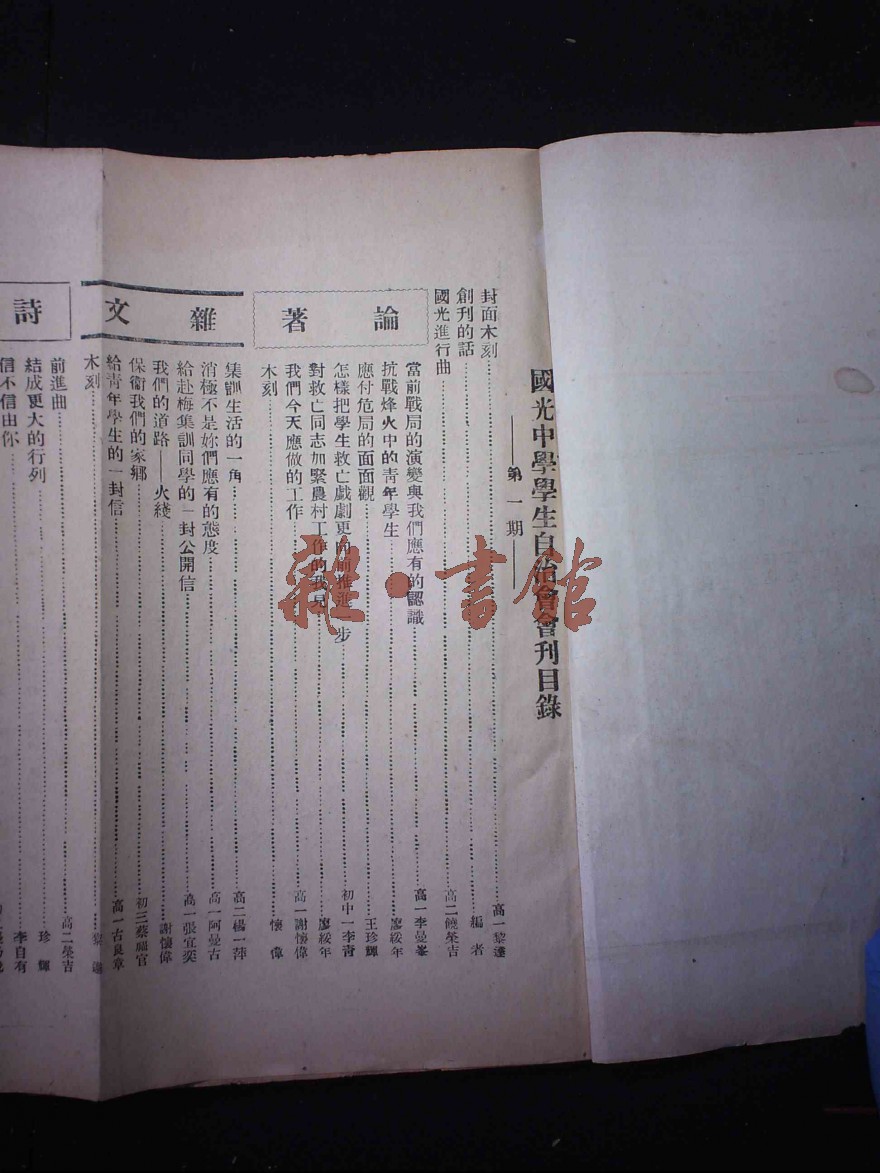 國光中學學生自治會會刊目錄
——第一期——
封面木刻……高一黎
創刊的話……編者
國光進行曲……高二饒榮吉
論著
當前戰局的演變與我們應有的認識……高一李曼峯
抗戰烽火中的青年學生……廖綏年
應付危局的面面觀……王珍輝
怎樣把學生救亡戲劇更向前推進一步……初中一李青
對救亡同志加緊農村工作的我見……廖綏年
我們今天應做的工作……高一謝懷偉
木刻……懷偉
雜文
集訓生活的一角……高二楊一萍
消極不是妳們應有的態度……高一阿曼古
給赴梅集訓同學的一封公開信……高一張宜奕
我們的道路——火綫……謝懷偉
保衛我們的家鄉……初三蔡福官
給青年學生的一封信……高一古良章
木刻……黎
詩
前進曲……高二榮吉
結成更大的行列……珍輝
信不信由你……李自有
雜·書館